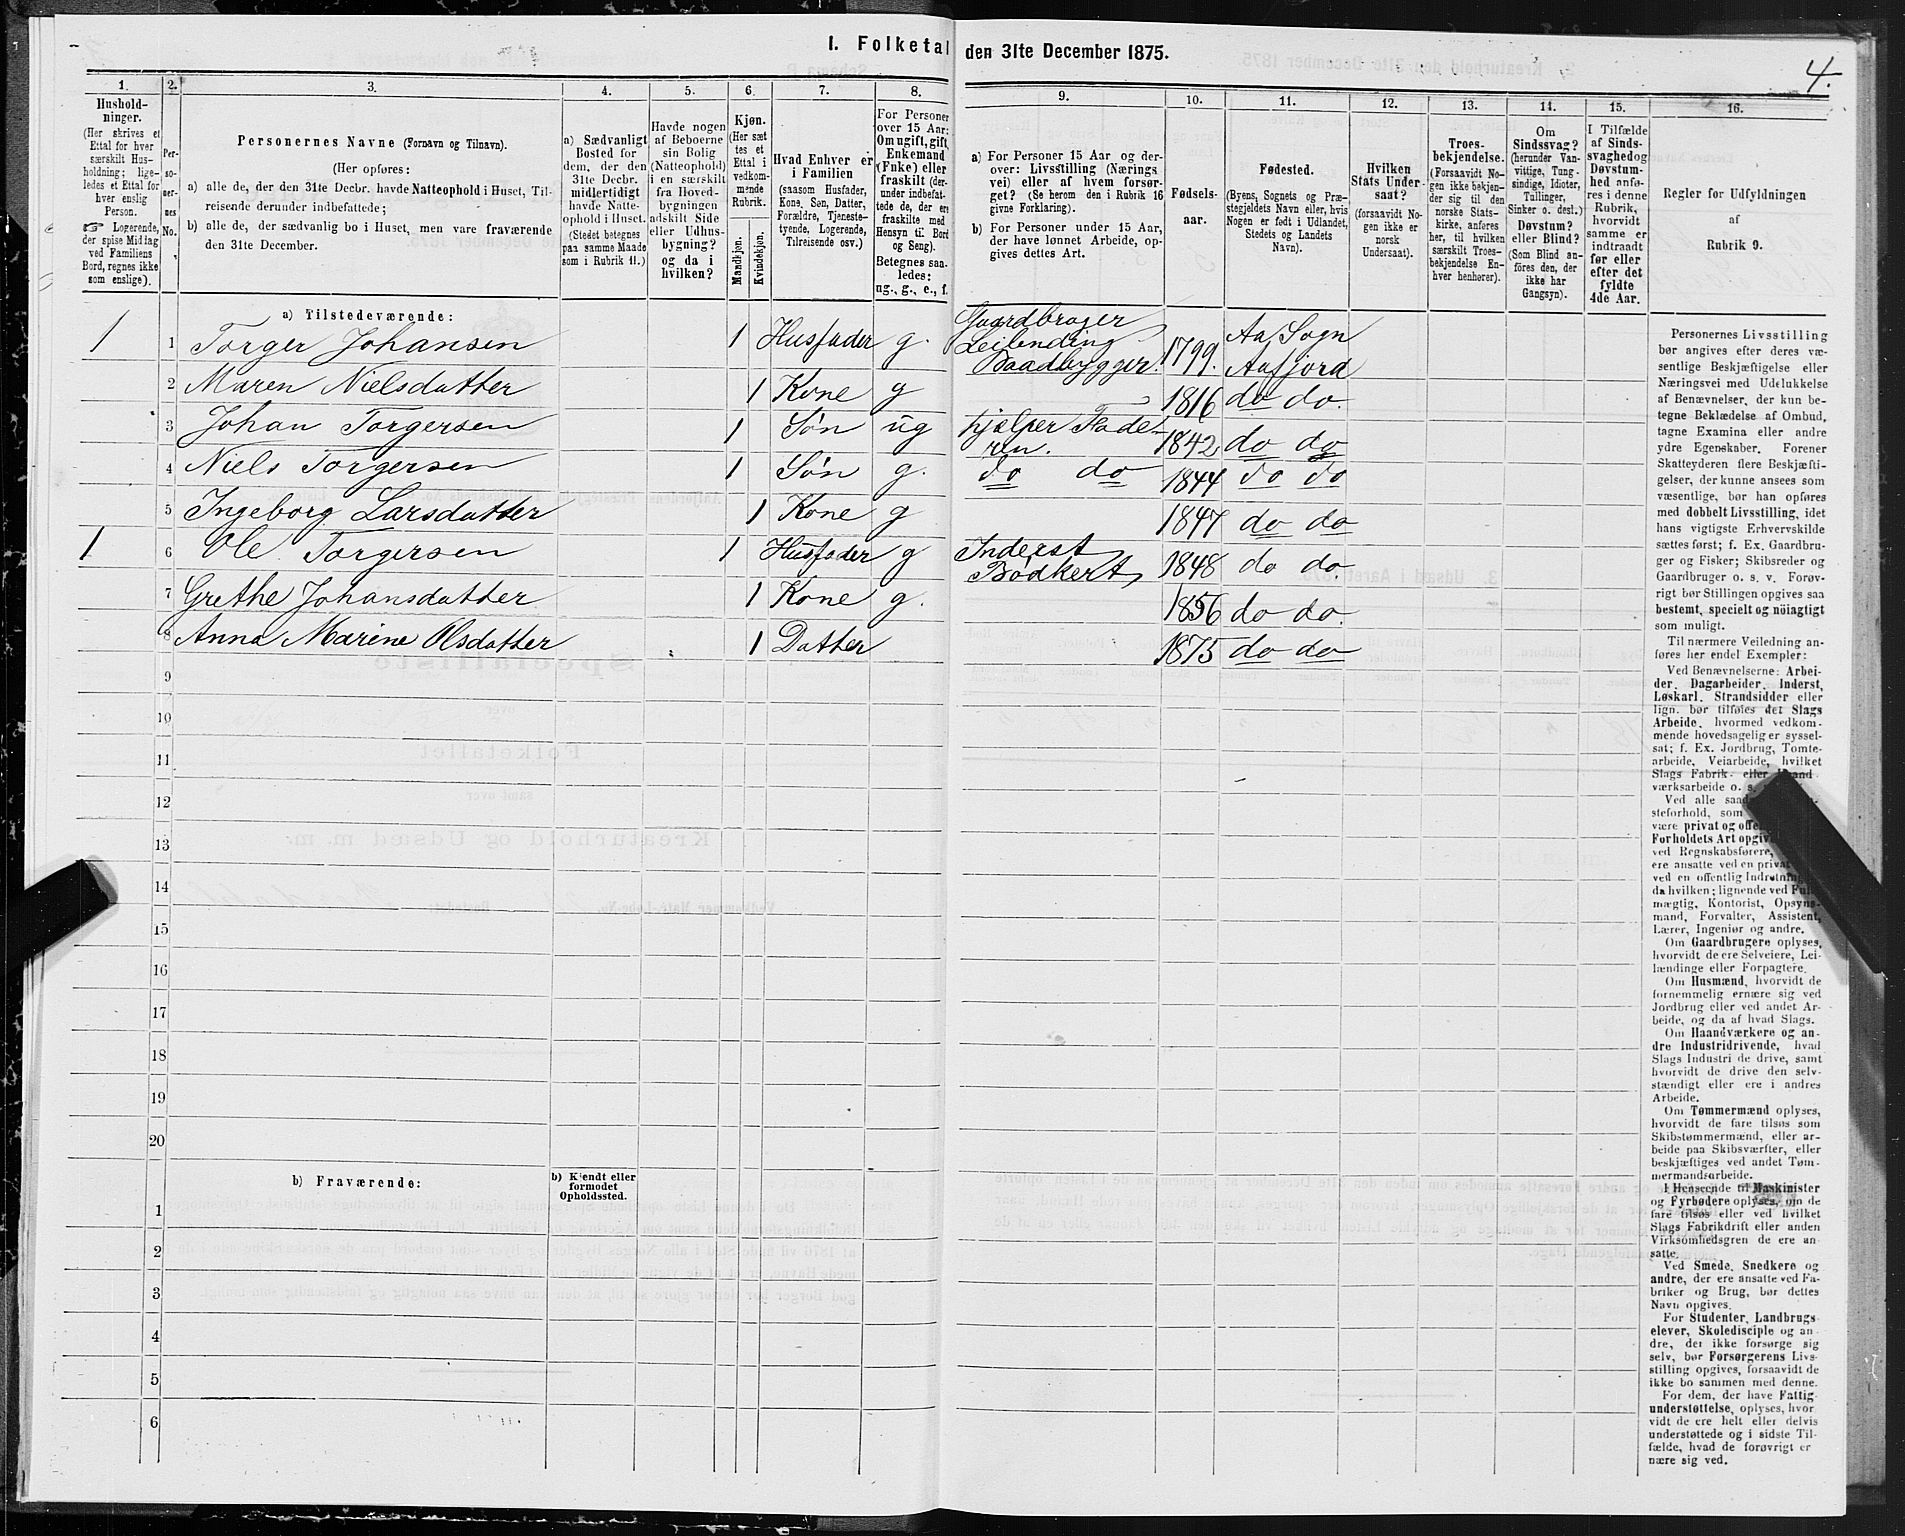 I. Folketal den 31te December 1875.
4.
1. 2. 3. 4. 5. 6. 7. 8. 9. 10. 11. 12. 13. 14. 15. 16.
Hushold-
ninger.
(Her skrives et
Ettal for hver
særskilt Hus-
holdning; lige-
ledes et Ettal for
hver enslig
Person.
☞ Logerende,
der spise Middag
ved Familiens
Bord, regnes ikke
som enslige).
Per-
so-
ner-
nes
No.
Personernes Navne (Fornavn og Tilnavn).
(Her opføres:
a) alle de, der den 31te Decbr. havde Natteophold i Huset, Til-
reisende derunder indbefattede;
b) alle de, der sædvanlig bo i Huset, men vare fraværende
den 31te December.
a) Sædvanligt
Bosted for
dem, der den
31te Decbr.
midlertidigt
havde Natte-
ophold i Huset.
(Stedet betegnes
paa samme Maade
som i Rubrik 11.)
Havde nogen
af Beboerne
sin Bolig
(Natteophold)
i en særskilt
fra Hoved-
bygningen
adskilt Side
eller Udhus-
bygning?
og da i
hvilken?
Kjøn.
(Her sæt
tes et
Ettal i
vedkom-
mende
Rubrik.
Mandkjøn.
Kvindekjøn.
Hvad Enhver er
i Familien
(saasom Husfader,
Kone, Søn, Datter,
Forældre, Tjeneste-
tyende, Logerende,
Tilreisende osv.)
For Personer
over 15 Aar:
Om ugift, gift,
Enkemand
(Enke) eller
fraskilt (der-
under indbefat-
tede de, der ere
fraskilte med
Hensyn til Bord
og Seng).
Betegnes saa-
ledes:
ug., g., e., f.
a) For Personer 15 Aar og der-
over: Livsstilling (Nærings
vei) eller af hvem forsør-
get? (Se herom den i Rubrik 16
givne Forklaring).
b) For Personer under 15 Aar,
der have lønnet Arbeide, op-
gives dettes Art.
Fødsels-
aar.
Fødested.
(Byens, Sognets og Præ-
stegjeldets Navn eller, hvis
Nogen er født i Udlandet,
Stedets og Landets
Navn).
Hvilken
Stats Under-
saat?
(forsaavidt No-
gen ikke er
norsk
Undersaat).
Troes-
bekjendelse.
(Forsaavidt No-
gen ikke bekjen-
der sig til den
norske Stats-
kirke, anføres
her, til hvilken
særskilt Troes-
bekjendelse En-
hver henhører).
Om
Sindssvag?
(herunder Van-
vittige, Tung-
sindige, Idioter,
Tullinger,
Sinker o. desl.)
Døvstum?
eller Blind?
(Som Blind an-
føres den, der
ikke har
Gangsyn).
I Tilfælde
af Sinds-
svaghed og
Døvstum-
hed anfø-
res i denne
Rubrik,
hvorvidt
samme er
indtraadt
før eller
efter det
fyldte
4de Aar.
Regler for Udfyldningen
af
Rubrik 9.
a) Tilstedeværende:
1 1 Torger Johansen 1 Husfader g. Gaardbruger Leilending Baadbygger. 1799. Aa Sogn Aafjord
2 Maren Nielsdatter 1 Kone g 1816 do do.
3 Johan Torgersen 1 Søn ug hjælper Fade- ren. 1842 do do
4 Niels Torgersen 1 Søn g. do do 1844 do do
5 Ingeborg Larsdatter 1 Kone g 1847 do do
1 6 Ole Torgersen 1 Husfader g Inderst Bødkert 1848 do do.
7 Grethe Johansdatter 1 Kone g. 1856 do do.
8 Anna Marine Olsdatter 1 Datter 1875 do do
9
10
11
12
13
14
15
16
17
18
19
20
b) Fraværende:
b) Kjendt eller
formodet
Opholdssted.
1
2
3
4
5
6
Personernes Livsstilling
bør angives efter deres væ-
sentlige Beskjæftigelse eller
Næringsvei med Udelukkelse
af Benævnelser, der kun be-
tegne Beklædelse af Ombud,
tagne Examina eller andre
ydre Egenskaber. Forener
Skatteyderen flere Beskjæfti-
gelser, der kunne ansees som
væsentlige, bør han opføres
med dobbelt Livsstilling, idet
hans vigtigste Erhvervskilde
sættes først; f. Ex. Gaardbru-
ger og Fisker; Skibsreder og
Gaardbruger o. s. v. Forøv-
rigt bør Stillingen opgives saa
bestemt, specielt og nöiagtigt
som muligt.
Til nærmere Veiledning an-
føres her endel Exempler:
Ved Benævnelserne: Arbei-
der, Dagarbeider, Inderst,
Løskarl, Strandsidder eller
lign. bør tilføies det Slags
Arbeide, hvormed vedkom-
mende hovedsagelig er syssel-
sat; f. Ex. Jordbrug, Tomte-
arbeide, Veiarbeide, hvilket
Slags Fabrik- eller Haand
værksarbeide o. s.
Ved alle saad
steforhold, som
være privat og offe
Forholdets Art opgiv
ved Regnskabsførere,
ere ansatte ved en privat
ved en offentlig Indretning
da hvilken; lignende ved Fuld-
mægtig, Kontorist, Opsyns-
mand, Forvalter, Assistent,
Lærer, Ingeniør og andre.
Om Gaardbrugere oplyses,
hvorvidt de ere Selveiere, Lei-
lændinge eller Forpagtere.
Om Husmænd, hvorvidt de
fornemmelig ernære sig ved
Jordbrug eller ved andet Ar-
beide, og da af hvad Slags.
Om Haandværkere og an-
dre Industridrivende, hvad
Slags Industri de drive, samt
hvorvidt de drive den selv-
stændigt eller ere i andres
Arbeide.
Om Tømmermænd oplyses,
hvorvidt de fare tilsøs som
Skibstømmermænd, eller ar-
beide paa Skibsværfter, eller
beskjæftiges ved andet Tøm-
mermandsarbeide.
I Henseende til Maskinister
og Fyrbødere oplyses, om de
fare tilsøs eller ved hvilket
Slags Fabrikdrift eller anden
Virksomhedsgren de ere an-
satte.
Ved Smede, Snedkere og
andre, der ere ansatte ved Fa-
briker og Brug, bør dettes
Navn opgives.
For Studenter, Landbrugs-
elever, Skoledisciple og an-
dre, der ikke forsørge sig
selv, bør Forsørgerens Livs-
stilling opgives, forsaavidt de
ikke bo sammen med denne.
For dem, der have Fattig-
understøttelse, oplyses, hvor
vidt de ere helt eller delvis
understøttede og i sidste Til-
fælde, hvad de forøvrigt er
nære sig ved.